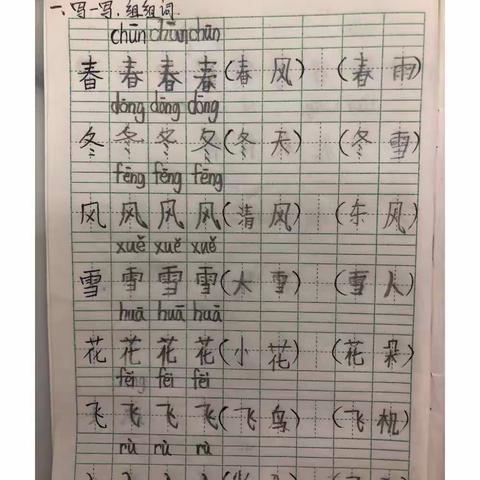 一、写一写,组组词.
chūn chūn chūn
春 春 春 春 (春 风) (春 雨)
dōng dōng dōng
冬 冬 冬 冬 (冬 天) (冬 雪)
fēng fēng fēng
风 风 风 风 (清 风) (东 风)
xuě xuě xuě
雪 雪 雪 雪 (大 雪) (雪 人)
huā huā huā
花 花 花 花 (小 花) (花 朵)
fēi fēi
飞 飞 飞 飞 (飞 鸟) (飞 机)
rù rù rù